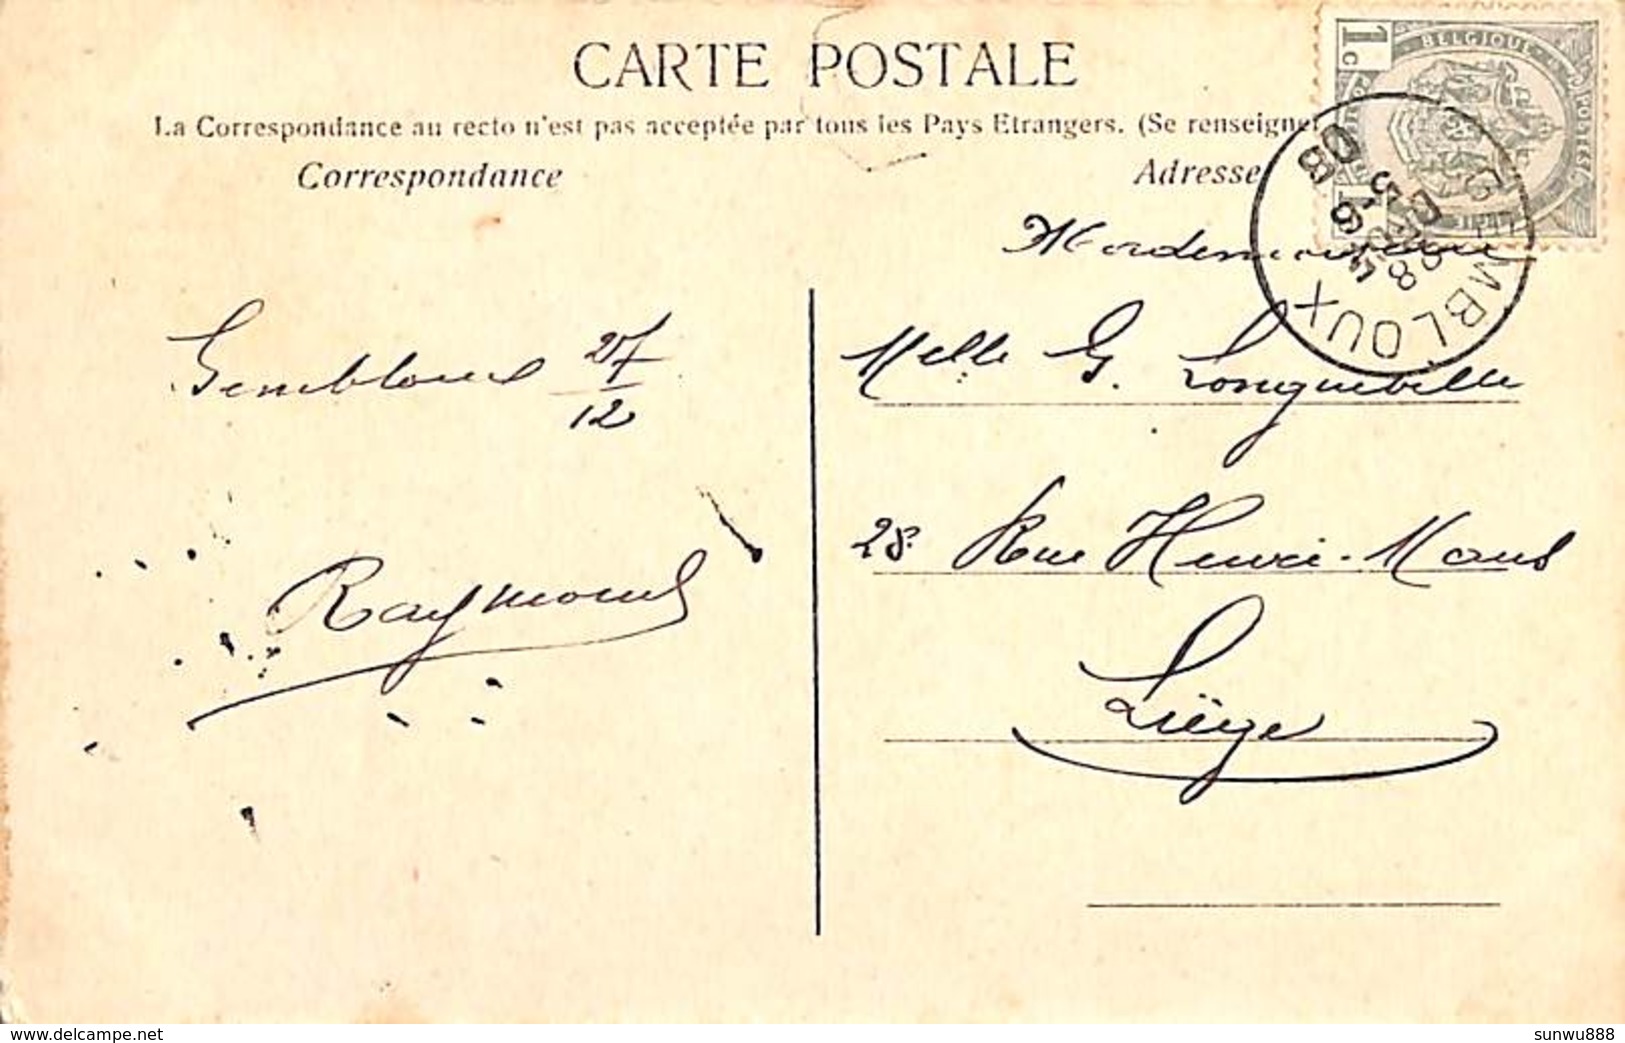 CARTE POSTALE
La Correspondance au recto n'est pas acceptée par tous les Pays Etrangers. (Se renseigner
Correspondance
Adresse
1c
BELGIQUE
GEMBLOUX
Mademoiselle
Gembloux 27/12
Melle G. Longueville
28. Rue Henri-Maus
Raymond
Liège
delcampe.net
sunwu888